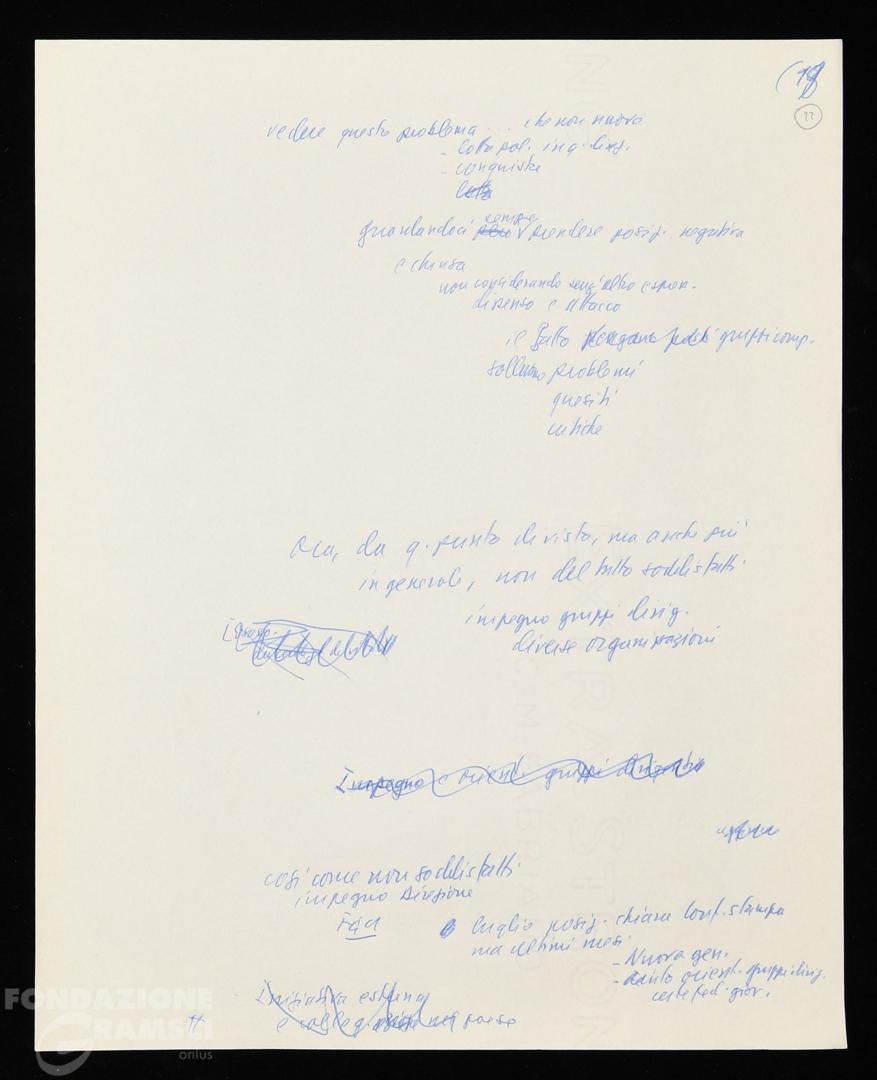 (18
22
vedere questo problema ... che non nuovo
- lotta pol. in q. dirz.
- conquiste
guardandoci sempre prendere posiz. negativa
e chiusa
non considerando senz'altro espon.
dissenso e attacco
il fatto gruppi comp.
sollevano problemi
quesiti
critiche
Ora, da q. punto di vista, ma anche più
in generale, non del tutto soddisfatti
impegno gruppi dirig.
diverse organizzazioni
Impegno e orient. gruppi dirigenti
così come non soddisfatti
impegno Direzione
FGCI
luglio posiz. chiara conf. stampa
ma ultimi mesi
- Nuova gen.
- orient. gruppi dirig.
certe fed. giov.
Iniziativa esterna
e colleg. nel paese
FONDAZIONE
GRAMSCI
onlus